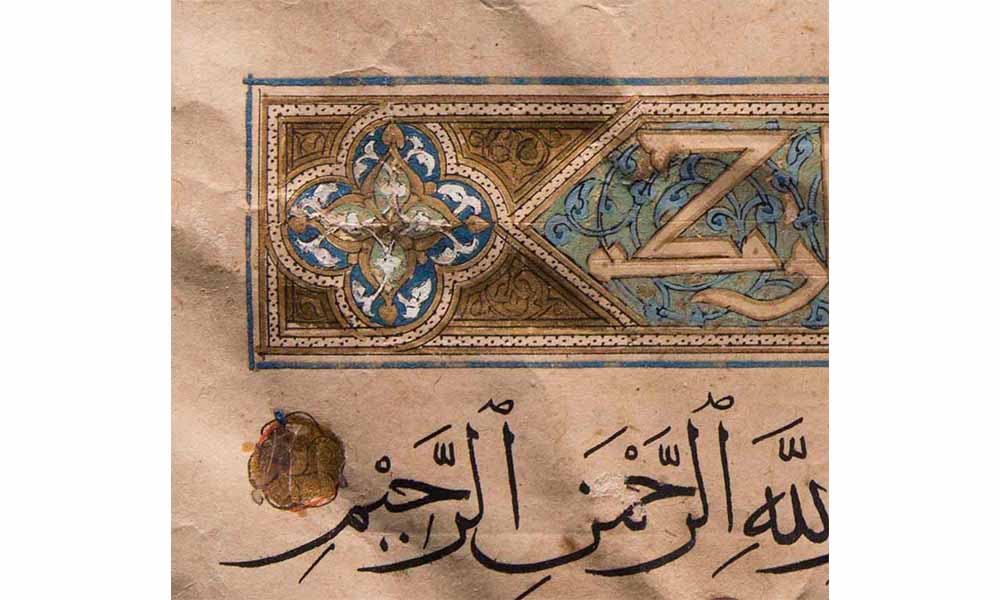 للَّهِ ٱلرَّحْمَنِ ٱلرَّحِيمِ